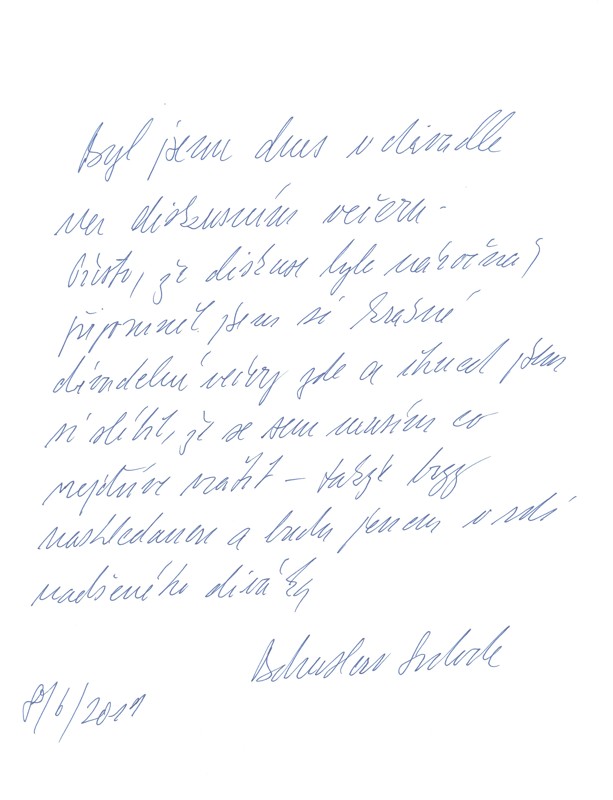 Byl jsem dnes v divadle
na diskusním večeru.
Přesto, že diskuse byla náročná,
připomněl jsem si krásné
divadelní večery zde a ihned jsem
si slíbil, že se sem musím co
nejdříve vrátit – takže brzy
nashledanou a budu jenom v roli
nadšeného diváka
Bohuslav Svoboda
8/6/2011